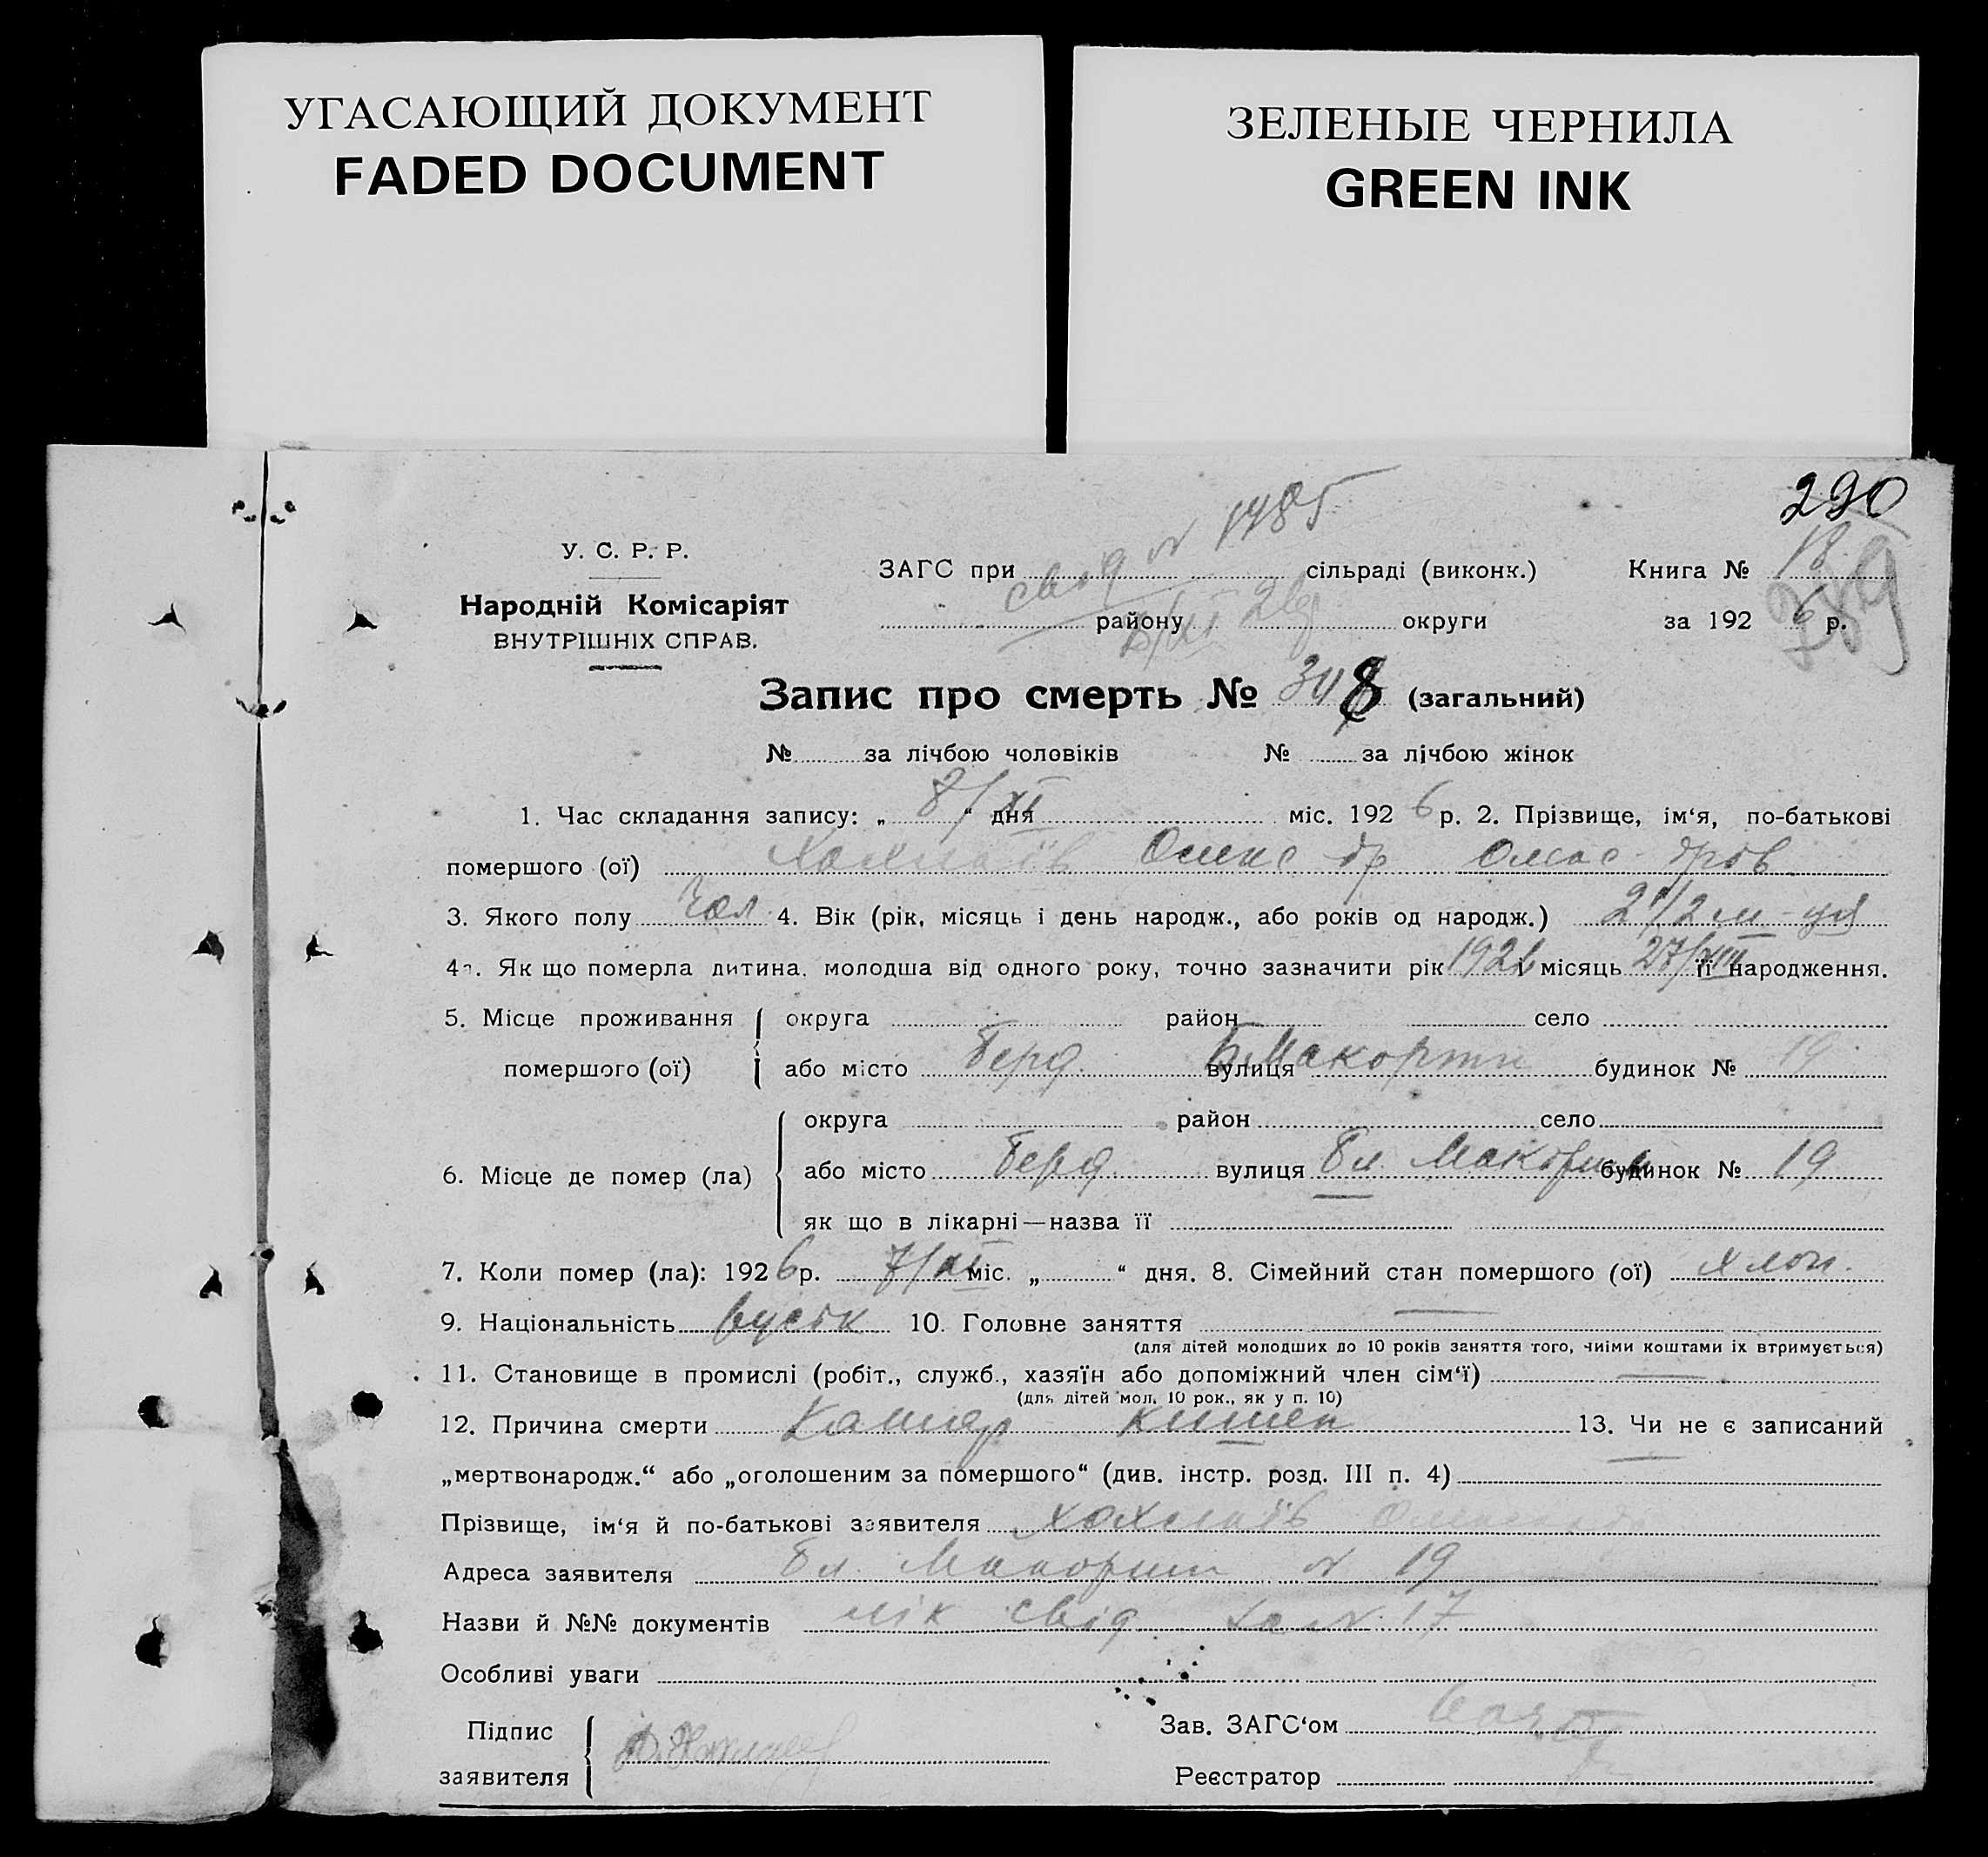 УГАСАЮЩИЙ ДОКУМЕНТ
FADED DOCUMENT
ЗЕЛЕНЫЕ ЧЕРНИЛА
GREEN INK
290
У. С. Р. Р.
Народній Комісаріят
ВНУТРІШНІХ СПРАВ.
свід № 1485
ЗАГС при сільраді (виконк.)
району округи
Книга № 18
за 1926 р.
Запис про смерть № 348 (загальний)
№ за лічбою чоловіків № за лічбою жінок
1. Час складання запису: „ 8/XI “ дня міс. 1926 р. 2. Прізвище, ім‘я, по-батькові
помершого (ої)
3. Якого полу Чол 4. Вік (рік, місяць і день народж., або років од народж.) 2 1/2 м-ця
4а. Як що померла дитина, молодша від одного року, точно зазначити рік 1926 місяць 27/VIII її народження.
5. Місце проживання помершого (ої)
округа район село
або місто Берд. вулиця Б. Макорти будинок № 19
6. Місце де помер (ла)
округа район село
або місто Берд. вулиця Бл Макорти будинок № 19
як що в лікарні—назва її
7. Коли помер (ла): 1926 р. 7/XI міс. „ “ дня. 8. Сімейний стан помершого (ої) хлоп.
9. Національність руськ 10. Головне заняття —
(для дітей молодших до 10 років заняття того, чиїми коштами їх втримується)
11. Становище в промислі (робіт., служб., хазяїн або допоміжний член сім‘ї) —
(для дітей мол. 10 рок., як у п. 10)
12. Причина смерти Катар кишек 13. Чи не є записаний
„мертвонародж.“ або „оголошеним за помершого“ (див. інстр. розд. III п. 4) —
Прізвище, ім‘я й по-батькові заявителя Хохлаїв
Адреса заявителя Бл. Макорти № 19
Назви й №№ документів лік свід за № 17
Особливі уваги
Підпис заявителя
Зав. ЗАГС‘ом
Реєстратор